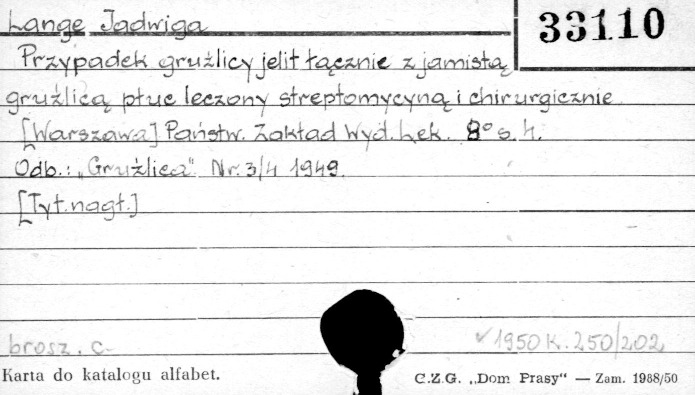 Lange Jadwiga
33110
Przypadek gruźlicy jelit łącznie z jamistą
gruźlicą płuc leczony streptomycyną i chirurgicznie
[Warszawa] Państw. Zakład Wyd. Lek. 8° s. 4.
Odb.: „Gruźlica" Nr. 3/4 1949.
[Tyt. nagł.]
brosz. c.
✓ 1950 K. 250/202
Karta do katalogu alfabet.
C.Z.G. „Dom Prasy" — Zam. 1988/50